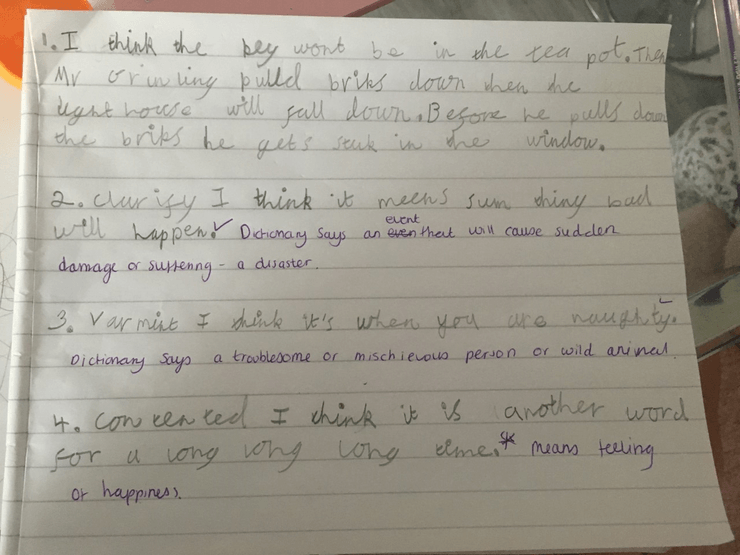 1. I think the pey wont be in the tea pot. Then
Mr Grinling pulld briks down then the
light house will fall down. Before he pulls down
the briks he gets stuk in the window.
2. clarify I think it meens sum thing bad
will happen. ✓ Dictionary says an even event that will cause sudden
damage or suffering - a disaster.
3. Varmint I think it's when you are naughty. ✓
Dictionary says a troublesome or mischievous person or wild animal.
4. Contented I think it is another word
for a long long long time. * means feeling
of happiness.